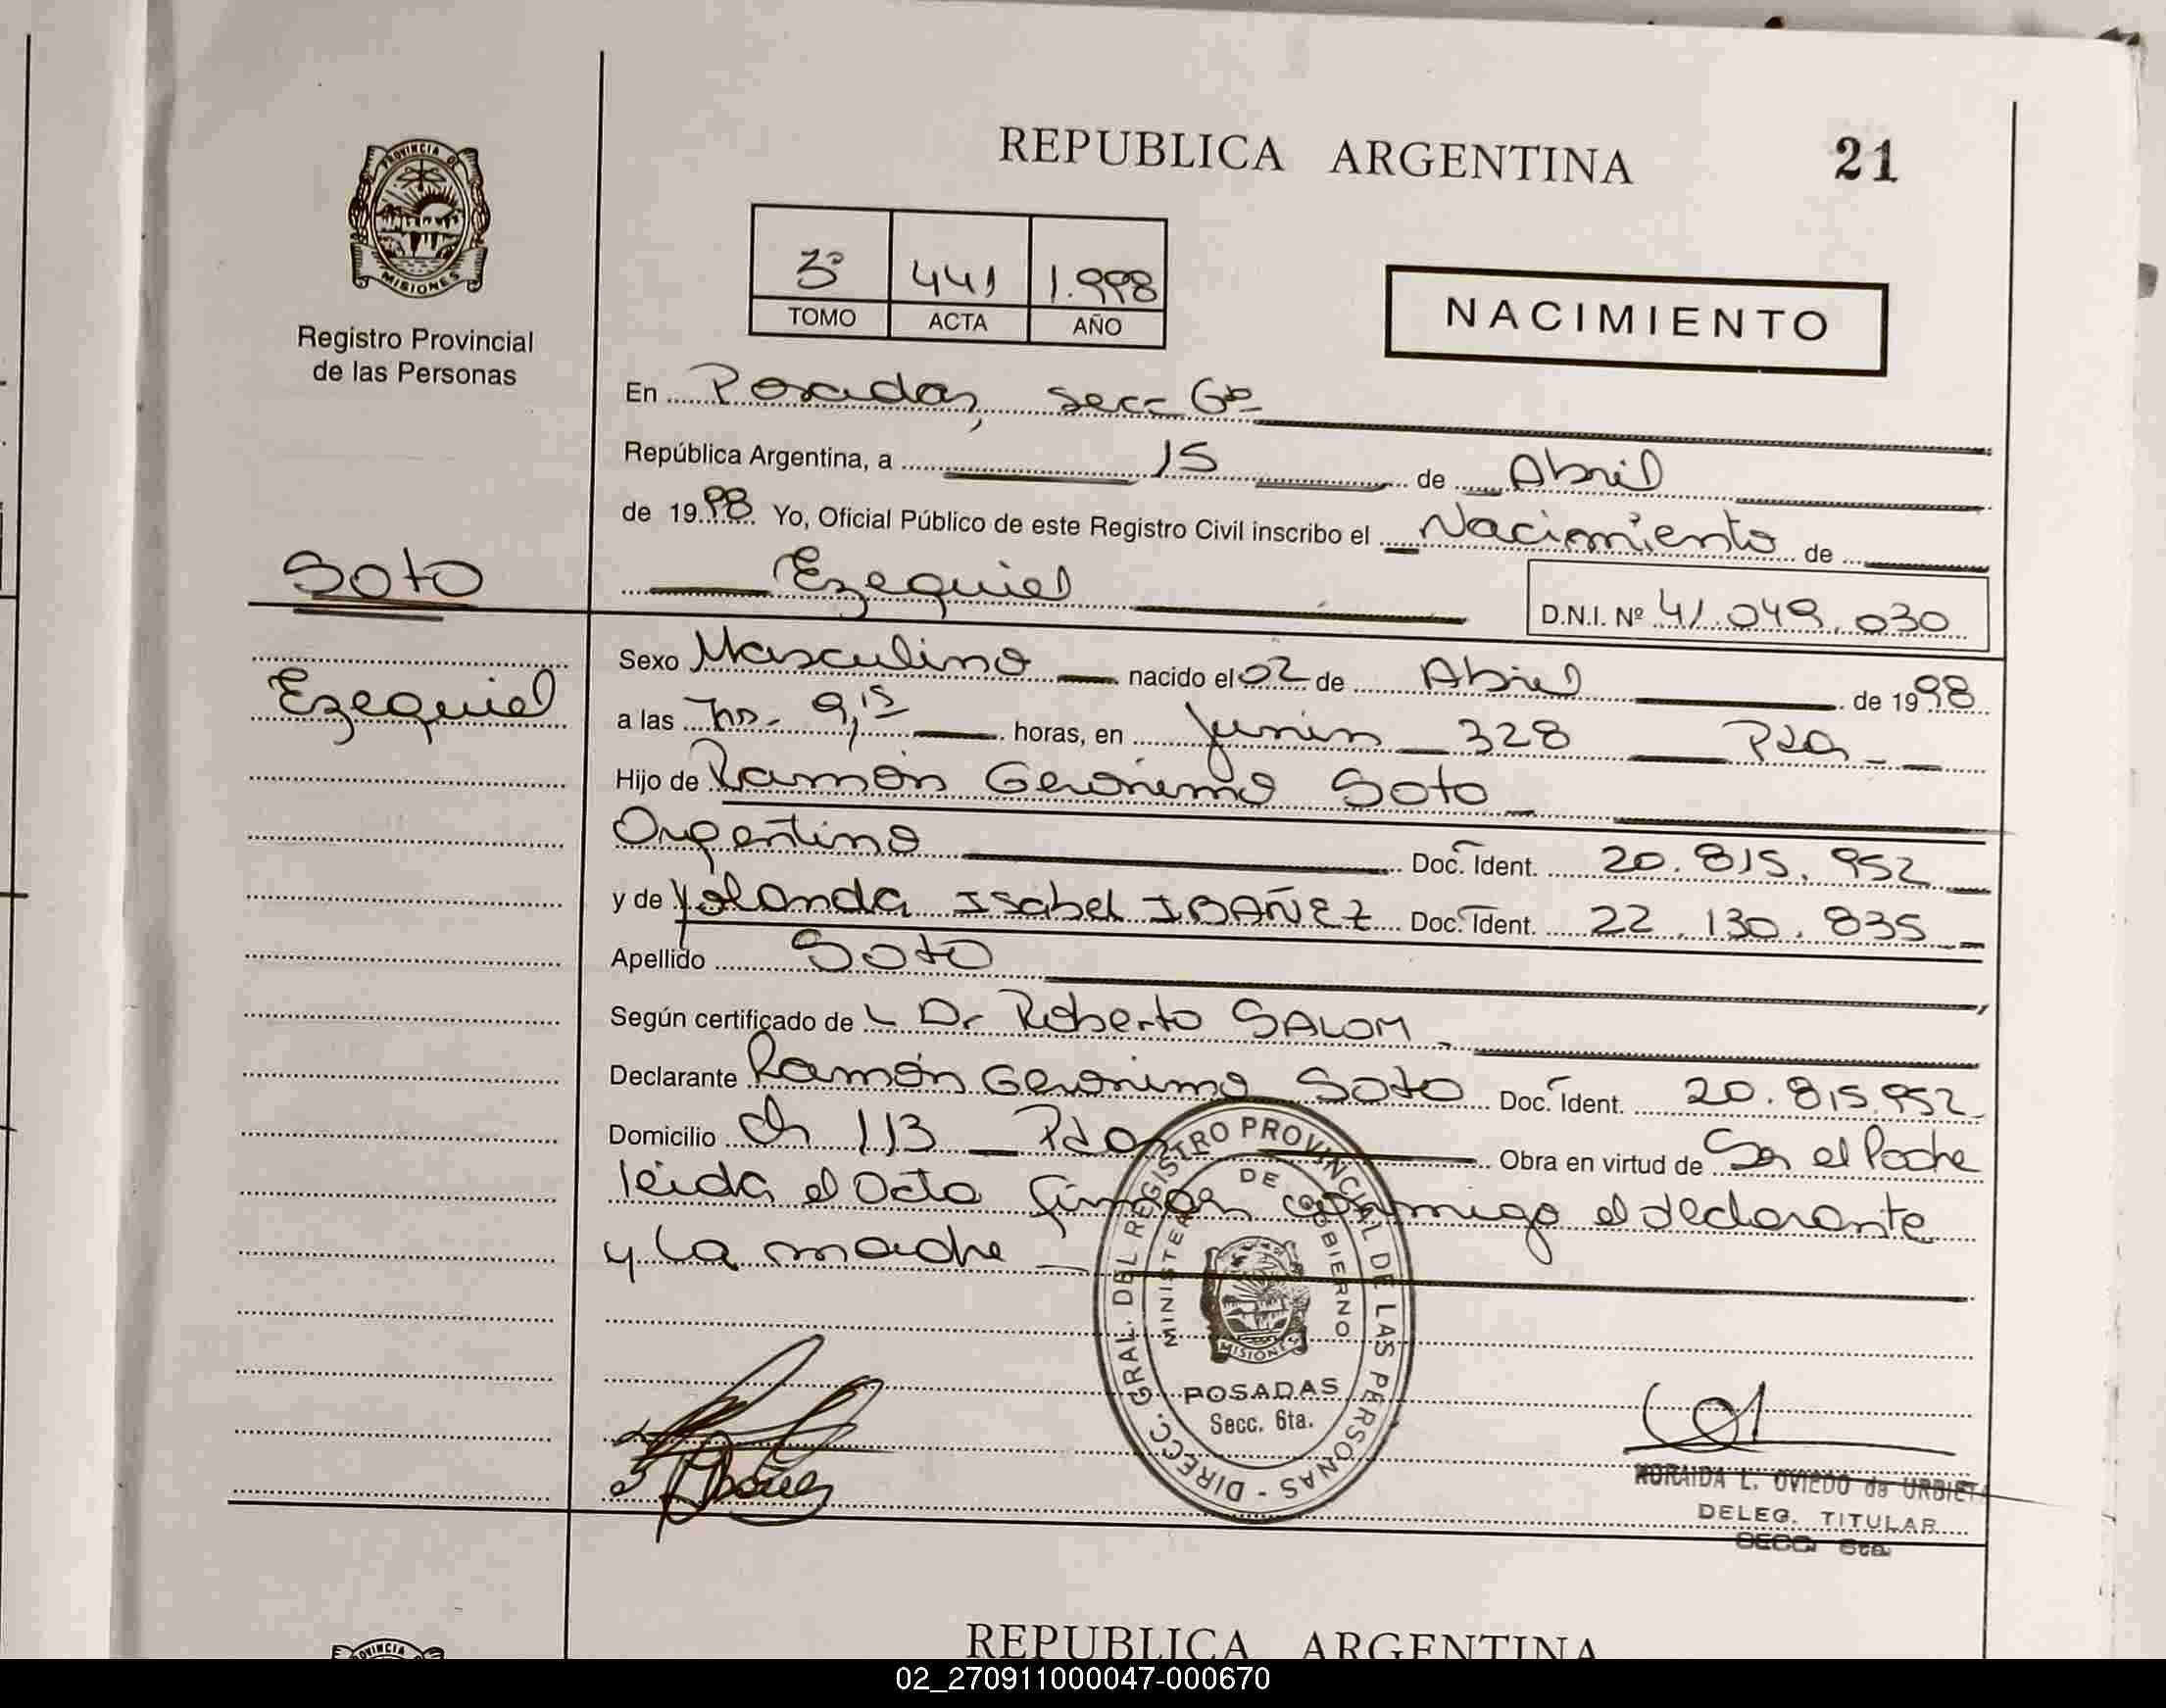 REPUBLICA ARGENTINA 21
PROVINCIA DE
MISIONES
Registro Provincial
de las Personas
3º 441 1.998
TOMO ACTA AÑO
NACIMIENTO
En Posadas, secc 6ª
República Argentina, a 15 de Abril
de 1998 Yo, Oficial Público de este Registro Civil inscribo el Nacimiento de
Soto
Ezequiel D.N.I. Nº 41.049.030
Ezequiel
Sexo Masculino nacido el 02 de Abril de 1998
a las hs. 9,15 horas, en Junin 328 Pdas
Hijo de Ramón Gerónimo Soto
Argentino Doc. Ident. 20.815.952
y de Yolanda Isabel IBAÑEZ Doc. Ident. 22.130.835
Apellido Soto
Según certificado de Dr Roberto SALOM
Declarante Ramón Gerónimo Soto Doc. Ident. 20.815.952
Domicilio Ch 113 Pdas Obra en virtud de Ser el Padre
leida el Acta firman conmigo el declarante
y la madre
DIRECC. GRAL. DEL REGISTRO PROVINCIAL DE LAS PERSONAS -
MINISTERIO DE GOBIERNO
MISIONES
POSADAS
Secc. 6ta.
NORAIDA L. OVIEDO de URBIETA
DELEG. TITULAR
SECC. 6ta.
REPUBLICA ARGENTINA
PROVINCIA
02_270911000047-000670